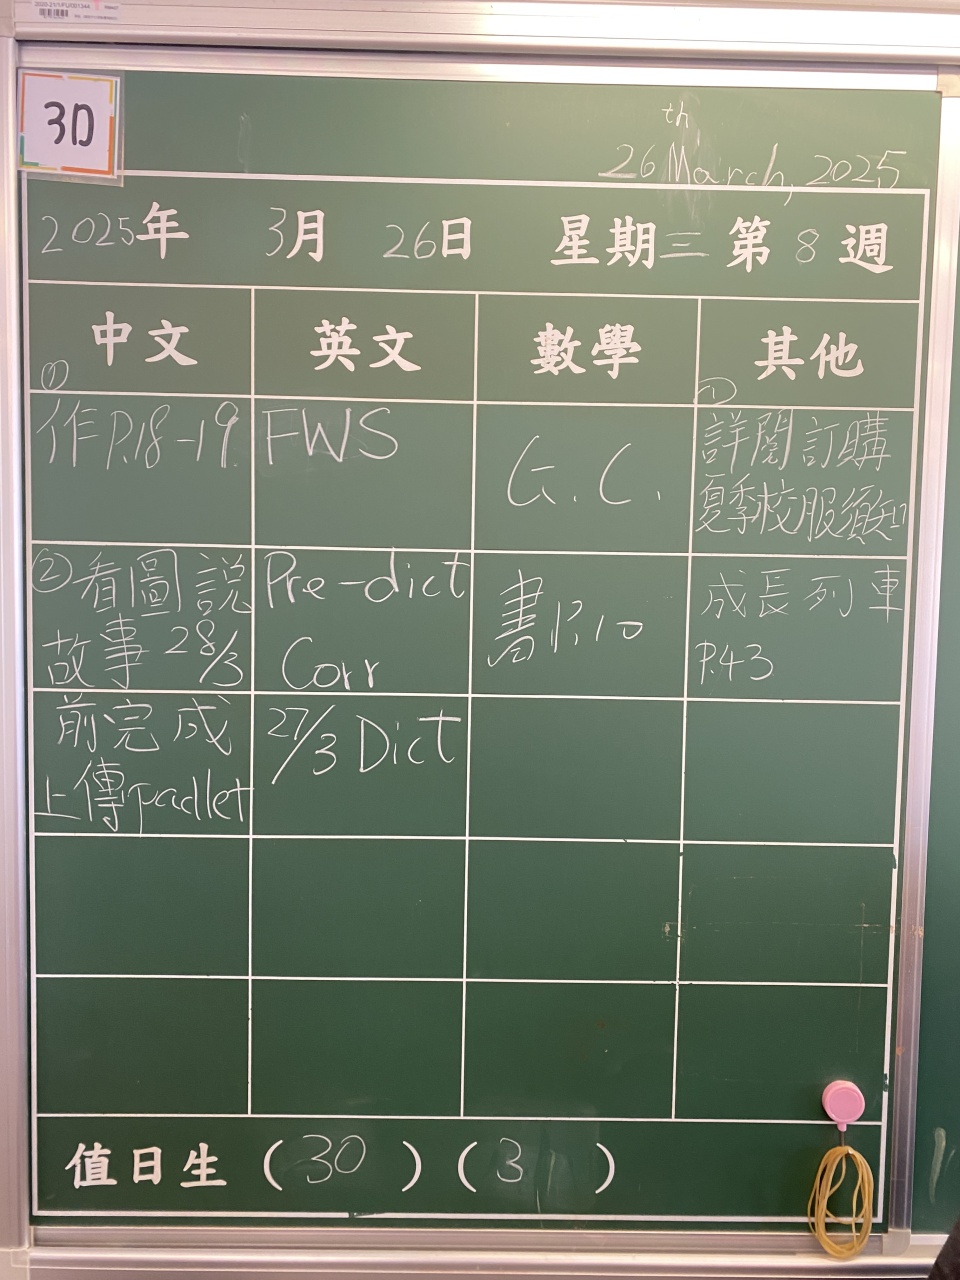 2020-21/1/FU/001344
3D
th
26 March, 2025
2025年 3月 26日 星期三 第 8 週
中文 英文 數學 其他
①
作P.18-19
②看圖說
故事 28/3
前完成
上傳padlet
FWS
Pre-dict
Corr
27/3 Dict
G.C.
書P.10
①
詳閱訂購
夏季校服須知
成長列車
P.43
值日生 (30) (3)